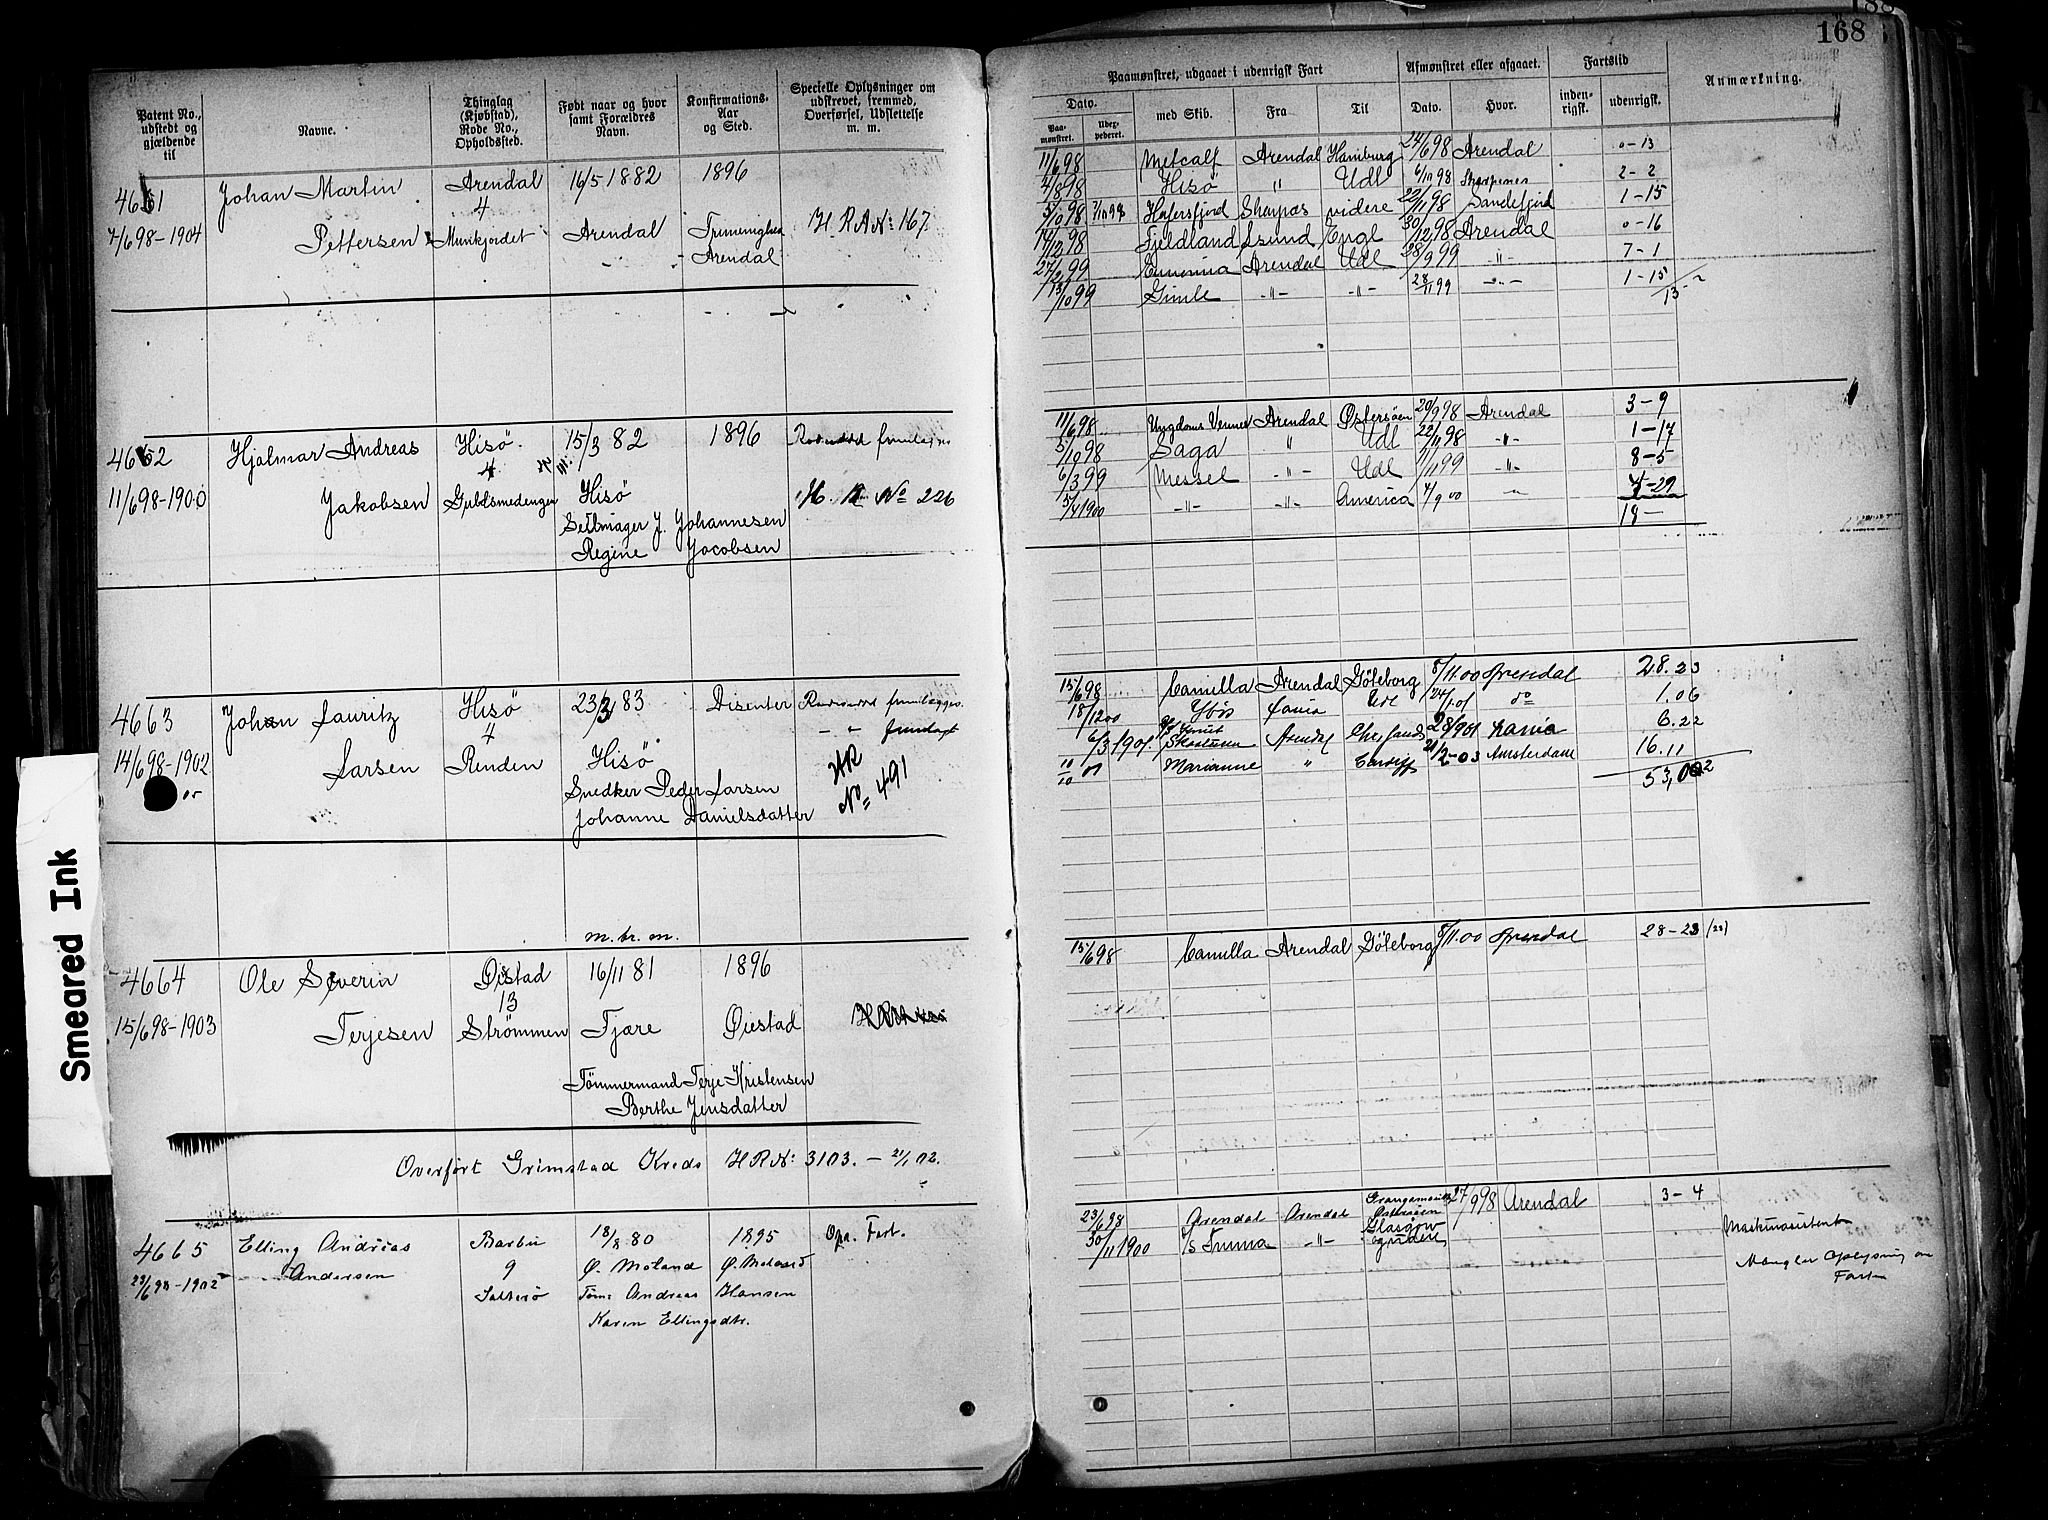 188
168
Patent No., udstedt og gjældende til
Navne.
Thinglag (Kjøbstad), Rode No., Opholdssted.
Født naar og hvor samt Forældres Navn.
Konfirmations-Aar og Sted.
Specielle Oplysninger om udskrevet, fremmed, Overførsel, Udslettelse m. m.
Paamønstret, udgaaet i udenrigsk Fart
Afmønstret eller afgaaet.
Fartstid
Anmærkning.
Dato.
Paamønstret.
Udexpederet.
med Skib.
Fra
Til
Dato.
Hvor.
indenrigsk.
udenrigsk.
4661 Johan Martin Arendal 16/5 1882 1896
4
7/6 98-1904 Pettersen Munkjordet Arendal H. R A No: 167
Arendal
11/6 98 Metcalf Arendal Hamburg 24/6 98 Arendal 0-13
4/8 98 Hisö " Udl 6/10 98 2-2
5/10 98 7/10 98 Hafersfjord videre 22/11 98 Sandefjord 1-15
14/12 98 Fjeldland Engl 30/12 98 Arendal 0-16
27/2 99 Arendal Udl 28/9 99 -"- 7-1
13/10 99 Gimle -"- -"- 28/11 99 -"- 1-15
13-2
4652 Hjalmar Andreas Hisö 15/3 82 1896
4
11/6 98-1900 Jakobsen Guldsmedengen Hisö H. R No 226
Seilmager J. Johannesen
Regine Jacobsen
11/6 98 Ungdoms Vennen Arendal Østersøen 20/9 98 Arendal 3-9
5/10 98 Saga " Udl 22/11 98 -"- 1-17
6/3 99 Messel -"- Udl 7/11 99 -"- 8-5
5/4 1900 -"- -"- America 4/9 00 -"- 4-29
18-
4663 Johan Lauritz Hisö 23/3 83 Disenter
4
14/6 98-1902 Larsen Renden Hisö HR
05 Snedker Peder Larsen No= 491
Johanne Danielsdatter
15/6 98 Camilla Arendal Göteborg 8/11.00 Arendal 28.23
18/12 00 Ibis 24/1.01 do 1.06
6/3 1901 Arendal 28/9 01 6.22
10/10 01 Marianne " Cardiff 21/2-03 Amsterdam 16.11
53,02
m. br. m.
4664 Ole Severin Øistad 16/11 81 1896
13
15/6 98-1903 Terjesen Strømmen Fjære Øiestad
Tømmermand Terje Kristensen
Berthe Jensdatter
15/6 98 Camilla Arendal Göteborg 8/11.00 Arendal 28-23 (23)
Overført Grimstad Kreds H R No: 3103. - 21/1 02.
4665 Elling Andreas Barbu 18/8 80 1895 Opg. Fart.
23/6 98-1902 Andersen 9 Ø. Moland Ø. Moland
Andreas Hansen
Karen Ellingsdtr.
23/6 98 Arendal Arendal Østersøen 27/9 98 Arendal 3-4
30/11 1900 S/S Imma -"- Glasgow
Maskinassistent
Mangler Oplysning om
Farten
Smeared Ink